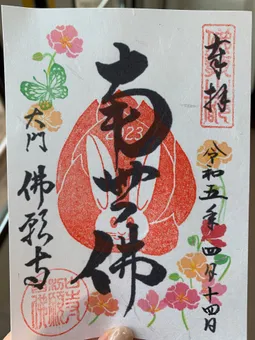 奉拝
令和五年四月十四日
南無佛
23
大門
佛願寺